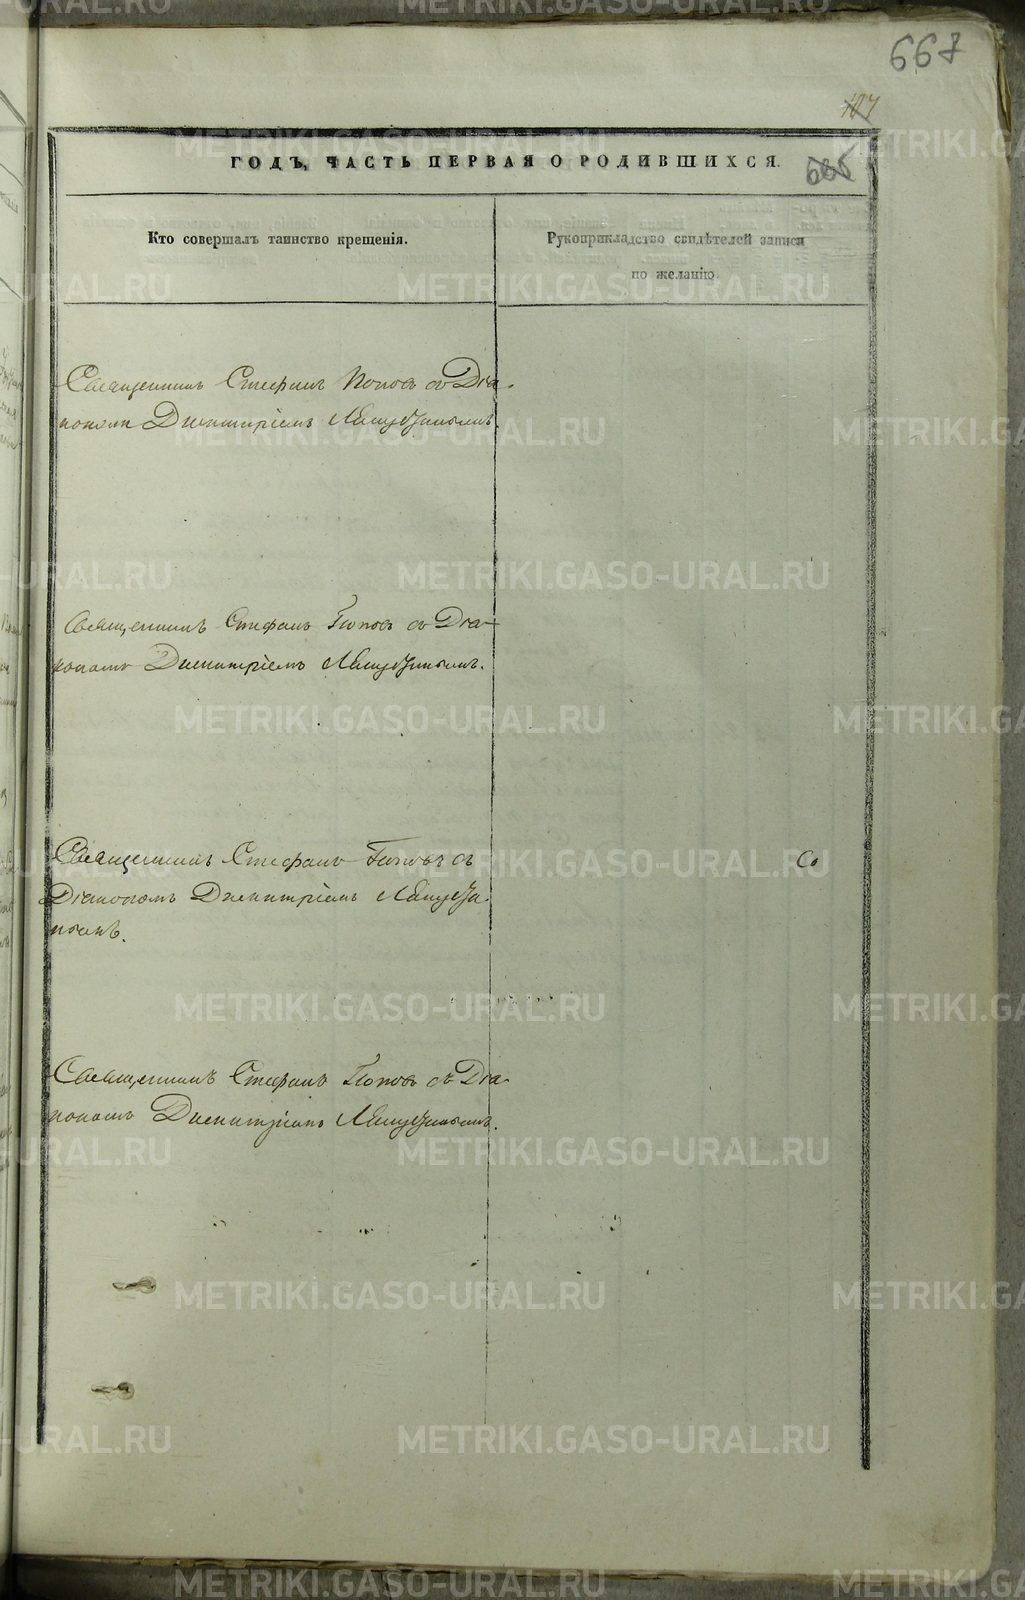 667
107
666
ГОДЪ, ЧАСТЬ ПЕРВАЯ О РОДИВШИХСЯ.
Кто совершалъ таинство крещенія.
Рукоприкладство свидѣтелей записи
по желанію.
Священникъ Стефанъ Поповъ съ Діа-
кономъ Димитріемъ
Священникъ Стефанъ Поповъ съ Діа-
кономъ Димитріемъ
Священникъ Стефанъ Поповъ съ
Діакономъ Димитріемъ
Со
Священникъ Стефанъ Поповъ съ Діа-
кономъ Димитріемъ
METRIKI.GASO-URAL.RU